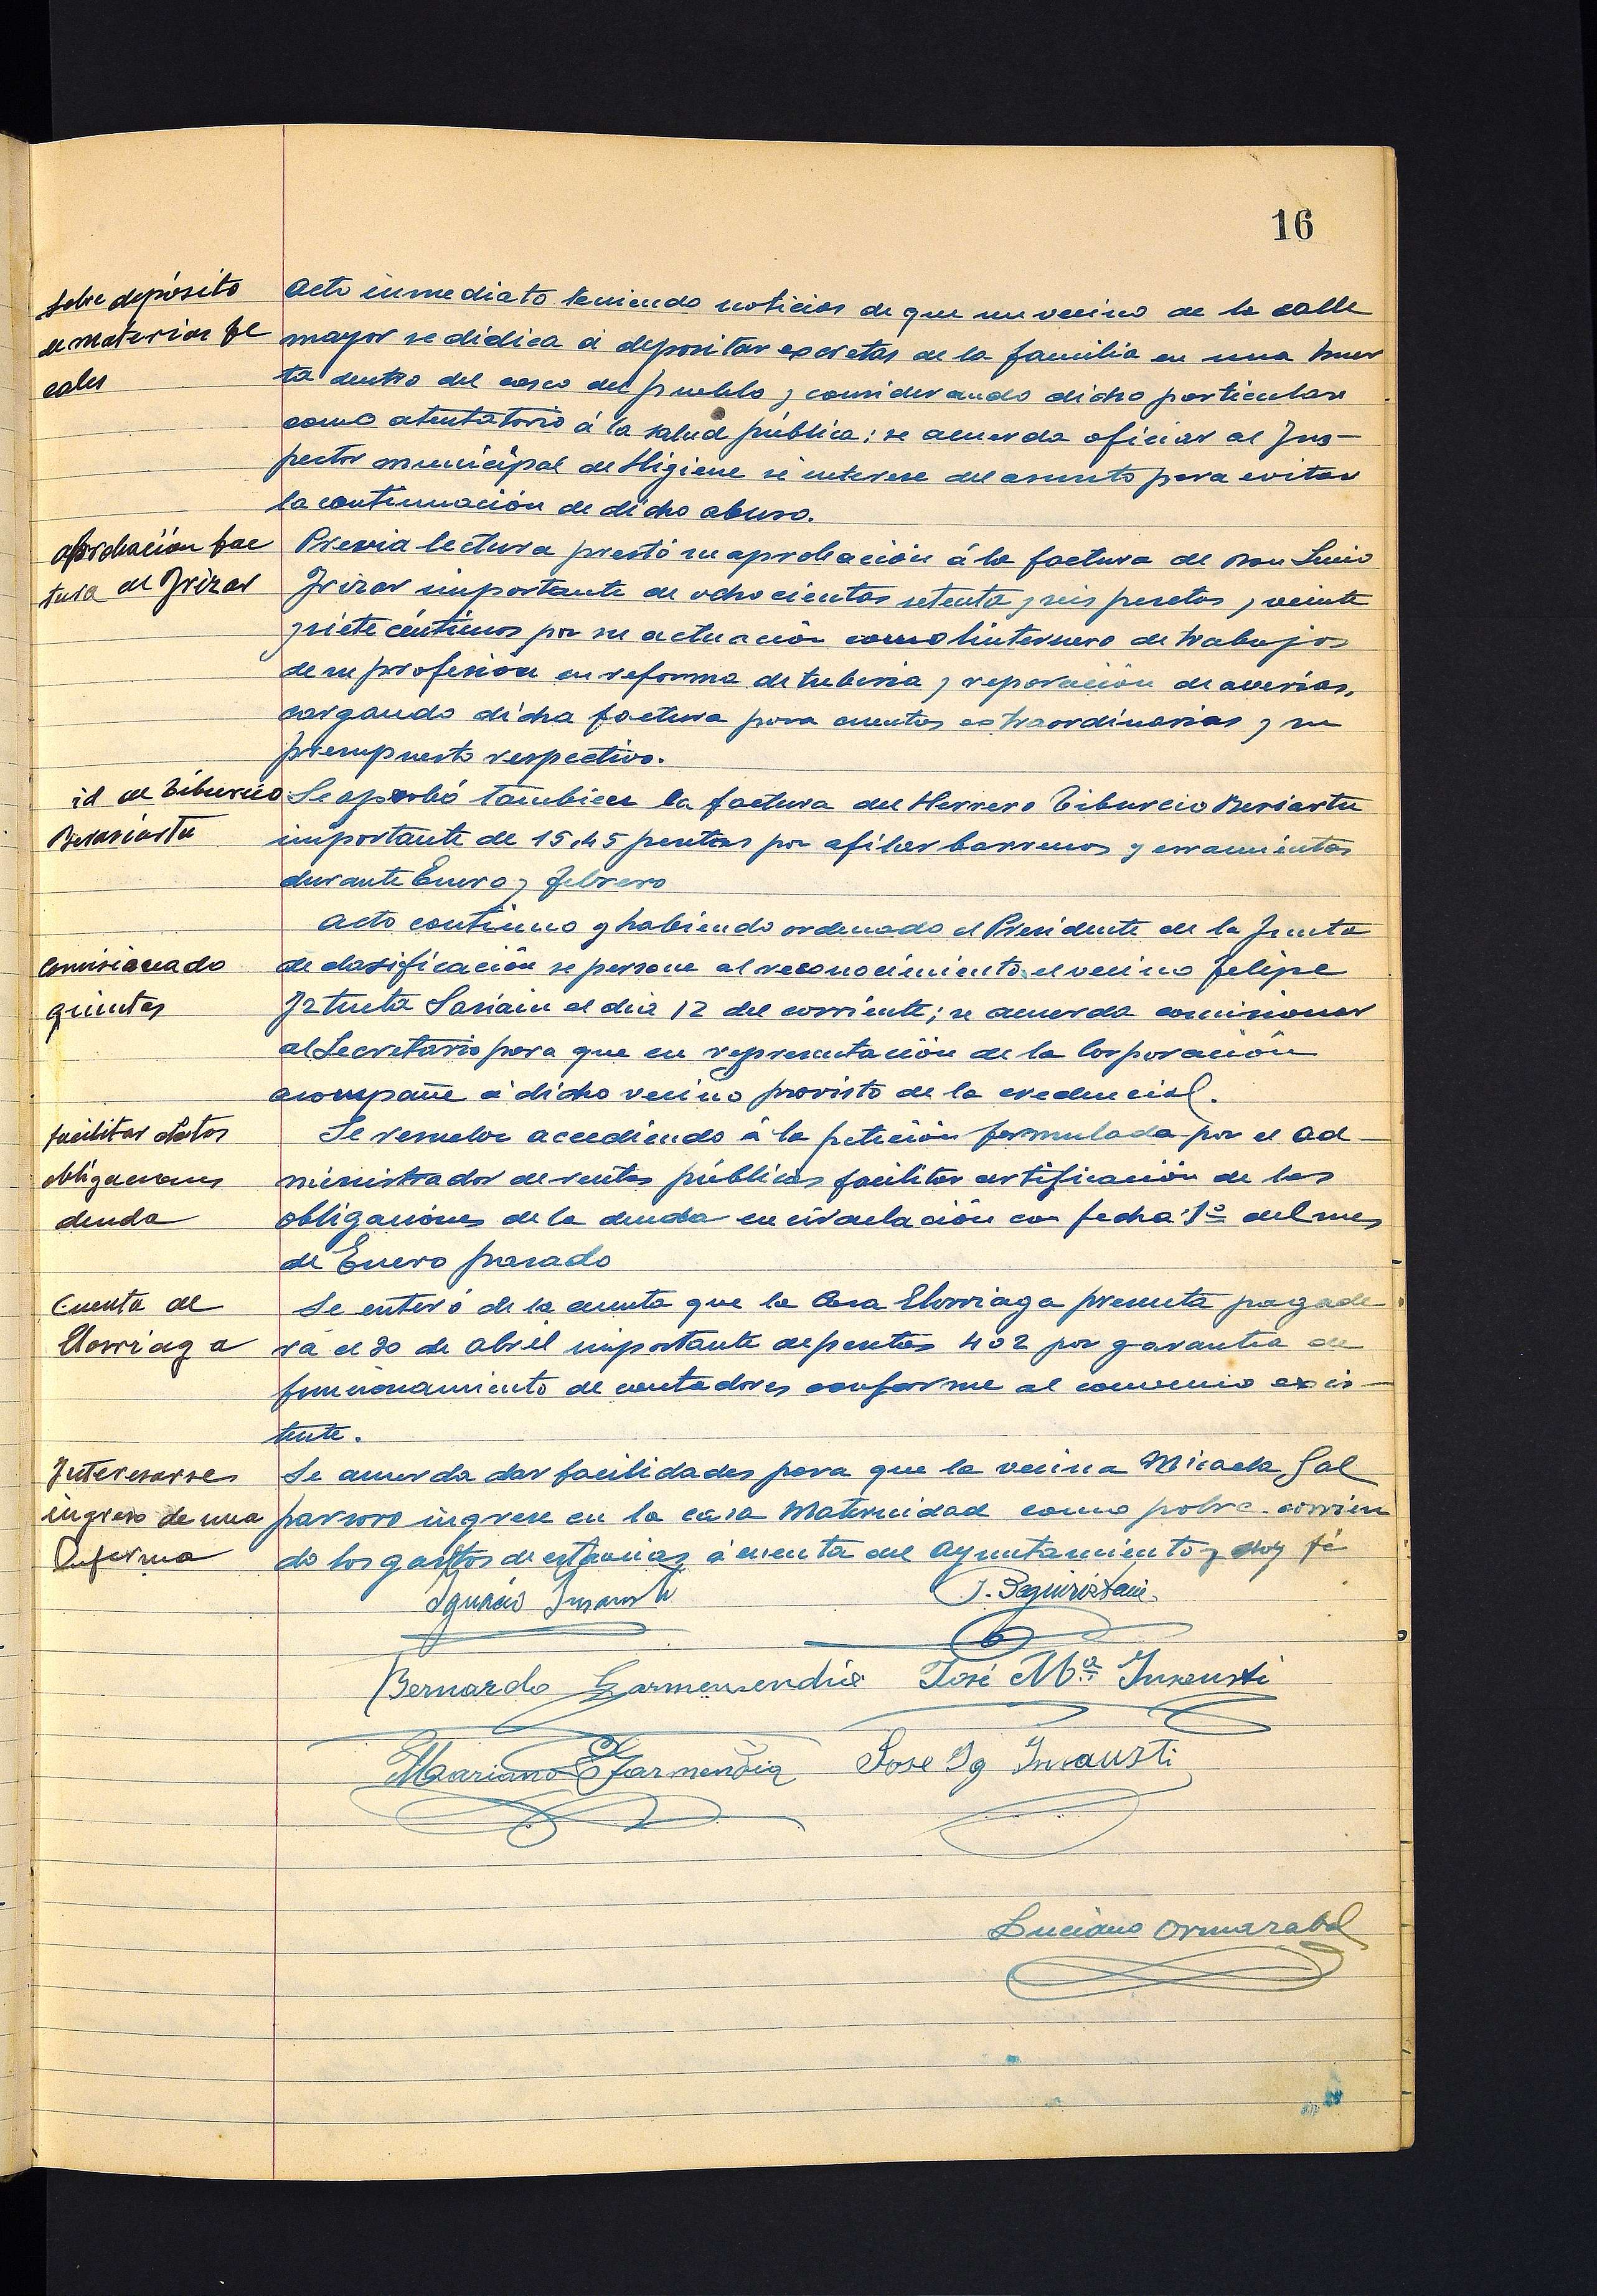 16
Sobre depósito
de materias fe
cales
Acto inmediato teniendo noticias de que un vecino de la calle
mayor se dédica á depositar excretas de la familia en una huer
ta dentro del casco del pueblo y considerando dicho particular
como atentatorio á la salud pública; se acuerda oficiar al Ins-
pector municipal de Higiene se interese del asunto para evitar
la continuación de dicho abuso.
Aprobación fac
tura de Irizar
Previa lectura prestó su aprobación á la factura de Don Lucio
Irizar importante de ochocientas setenta y seis pesetas y veinte
y siete céntimos por su actuación como linternero de trabajos
de su profesión en reforma de tuberia y reparación de averias,
cargando dicha factura para cuentas extraordinarias y su
presupuesto respectivo.
id de Tiburcio
Se aprobó tambien la factura del Herrero Tiburcio Beriartu
importante de 15,45 pesetas por afilar barrenos y erramientas
durante Enero y Febrero
Acto continuo y habiendo ordenado el Presidente de la Junta
Comisionado
quintas
de clasificación se persone al reconocimiento el vecino Felipe
Iztueta Sariain el dia 12 del corriente; se acuerda comisionar
al Secretario para que en representación de la Corporación
acompañe á dicho vecino provisto de la credencial.
facilitar datos
obligaciones
deuda
Se resuelve accediendo á la petición formulada por el Ad-
ministrador de rentas públicas facilitar certificación de las
obligaciónes de la deuda en circulación con fecha 1º del mes
de Enero pasado
Cuenta de
Elorriaga
Se enteró de la cuenta que la Casa Elorriaga presenta pagade
ra el 30 de Abril importante de pesetas 402 por garantia de
funcionamiento de contadores conforme al convenio exis-
tente.
Interesarse
ingreso de una
Enferma
Se acuerda dar facilidades para que la vecina Micaela Gal
parsoro ingrese en la casa Maternidad como pobre corrien
do los gastos de estancias á cuenta del Ayuntamiento y doy fé
Ignacio Insausti
J. Eguiristain
Bernardo Garmendia José Mª Insausti
Mariano Garmendia Jose Ig Insausti
Luciano Ormazabal